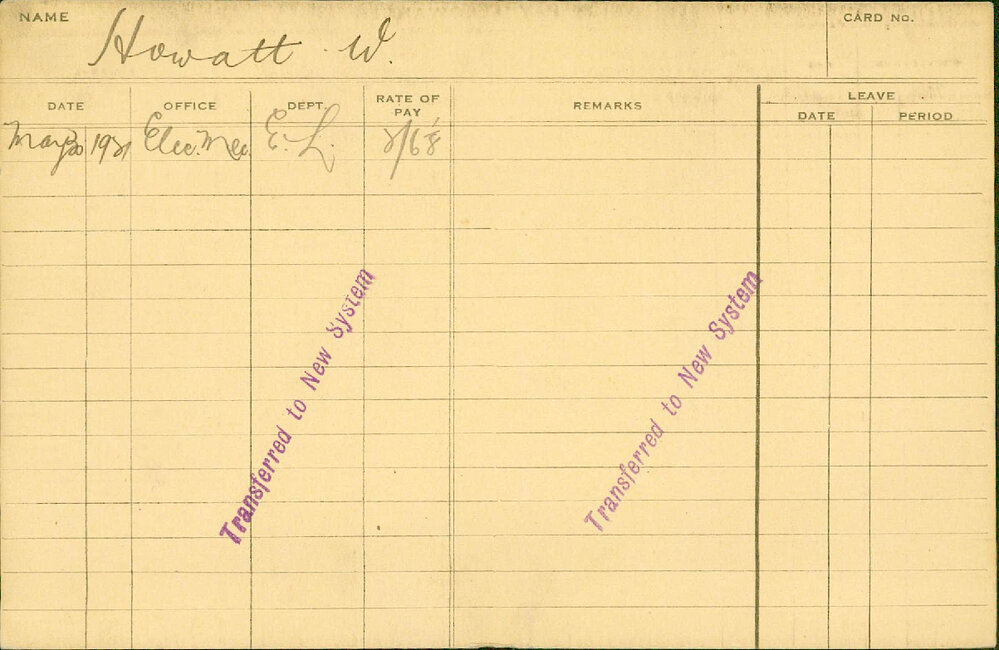 NAME
CARD No.
Howatt W.
DATE
OFFICE
DEPT.
RATE OF PAY
REMARKS
LEAVE
DATE
PERIOD
May 20 1921 Elec. Mec. E. L.
Transferred to New System
Transferred to New System